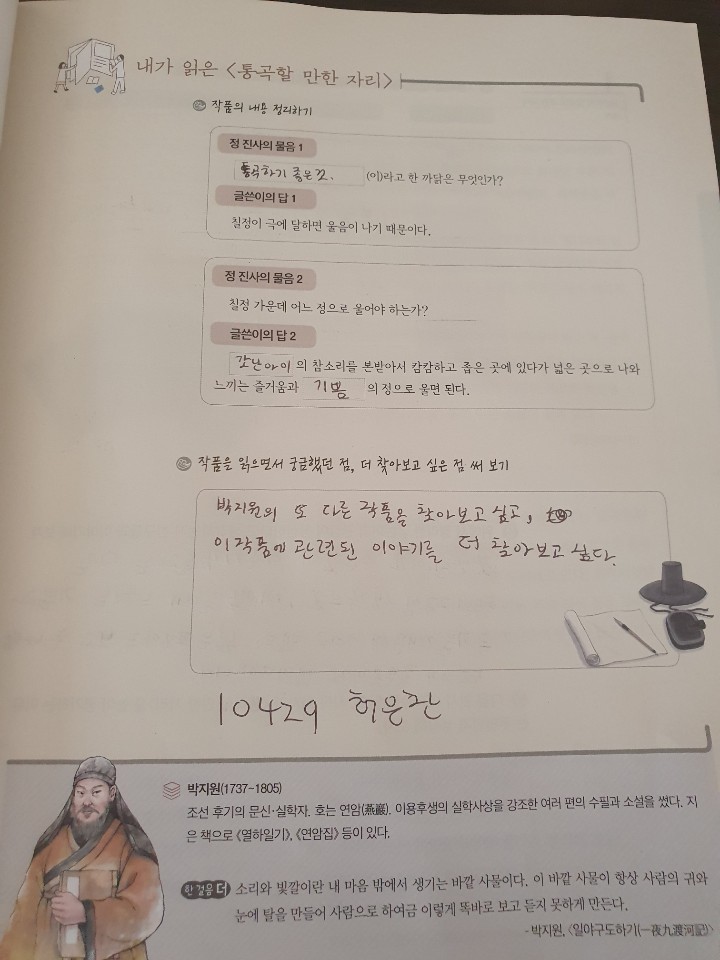 내가 읽은 <통곡할 만한 자리>
작품의 내용 정리하기
정 진사의 물음 1
통곡하기 좋은 곳. (이)라고 한 까닭은 무엇인가?
글쓴이의 답 1
칠정이 극에 달하면 울음이 나기 때문이다.
정 진사의 물음 2
칠정 가운데 어느 정으로 울어야 하는가?
글쓴이의 답 2
갓난아이 의 참소리를 본받아서 캄캄하고 좁은 곳에 있다가 넓은 곳으로 나와
느끼는 즐거움과 기쁨 의 정으로 울면 된다.
작품을 읽으면서 궁금했던 점, 더 찾아보고 싶은 점 써 보기
박지원의 또 다른 작품을 찾아보고 싶고,
이 작품에 관련된 이야기를 더 찾아보고 싶다.
10429 허은찬
박지원(1737-1805)
조선 후기의 문신·실학자. 호는 연암(燕巖). 이용후생의 실학사상을 강조한 여러 편의 수필과 소설을 썼다. 지
은 책으로 《열하일기》, 《연암집》 등이 있다.
한 걸음 더 소리와 빛깔이란 내 마음 밖에서 생기는 바깥 사물이다. 이 바깥 사물이 항상 사람의 귀와
눈에 탈을 만들어 사람으로 하여금 이렇게 똑바로 보고 듣지 못하게 만든다.
- 박지원, 〈일야구도하기(一夜九渡河記)〉